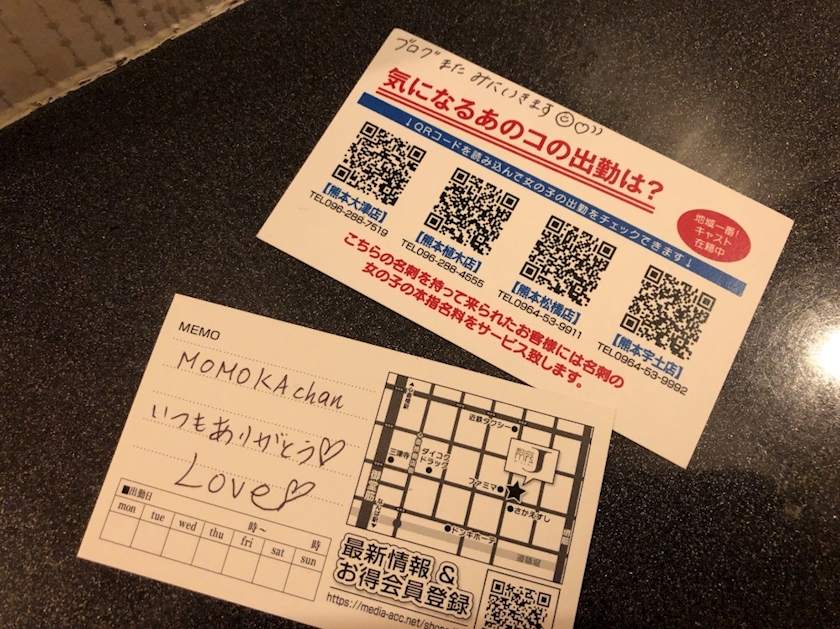 ブログ また みにいきます☺♡))
気になるあのコの出勤は?
↓QRコードを読み込んで女の子の出勤をチェックできます↓
地域一番!
キャスト
在籍中
【熊本大津店】
TEL096-288-7519
【熊本植木店】
TEL096-288-4555
【熊本松橋店】
TEL0964-53-9911
【熊本宇土店】
TEL0964-53-9992
こちらの名刺を持って来られたお客様には名刺の
女の子の本指名料をサービス致します。
MEMO
MOMOKAchan
いつもありがとう♡
Love♡
■出勤日
時~
時
mon tue wed thu fri sat sun
近鉄タクシー
三津寺
ダイコク
ドラッグ
ファミマ
さかえすし
ドンキホーテ
道頓堀
最新情報 &
お得会員登録
https://media-acc.net/shop